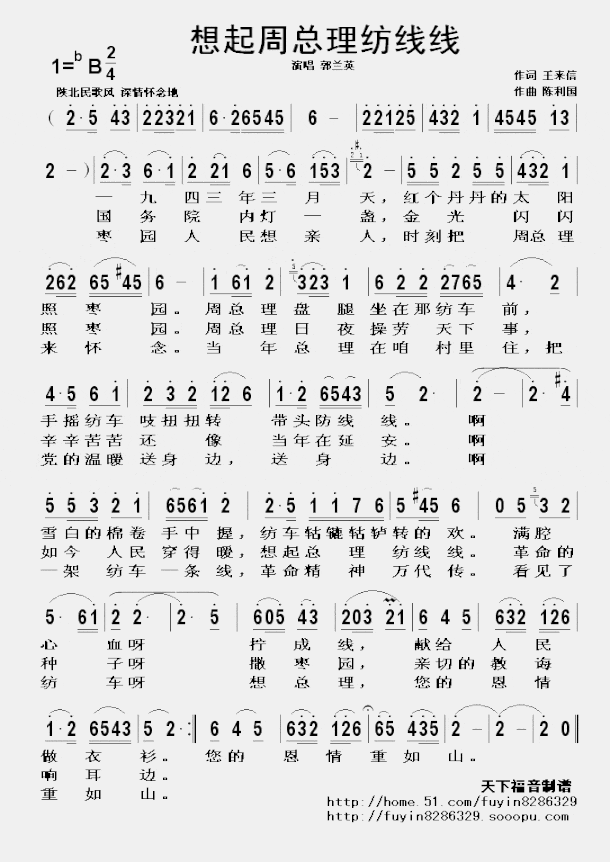 想起周总理纺线线
1=ᵇB 2/4
演唱 郭兰英
作词 王来信
陕北民歌风 深情怀念地
作曲 陈利国
( 2· 5 43 | 22321 | 6·26545 | 6 - | 22125 | 432 1 | 4545 13 |
2 - ) | 2·3 6·1 | 2 21 6 | 5·6 153 | 2 - | 5 5 2 5 5 | 432 1 |
一九四三年三月天，红个丹丹的太阳
国务院内灯一盏，金光闪闪
枣园人民想亲人，时刻把周总理
262 65 #45 | 6 - | 1 61 2 | 323 1 | 6 2 2 2765 | 4· 2 |
照枣园。周总理盘腿坐在那纺车前，
照枣园。周总理日夜操劳天下事，
来怀念。当年总理在咱村里住，把
4·5 6 1 | 2 3 2 12 6 | 1·2 6543 | 5 2· | 2 - | 2· #4 |
手摇纺车吱扭扭转带头防线线。啊
辛辛苦苦还像当年在延安。啊
党的温暖送身边，送身边。啊
5 5 3 2 1 | 6561 2 | 2·5 1 1 7 6 | 5 #45 6 | 0 5 3 2 |
雪白的棉卷手中握，纺车轱辘轱轳转的欢。满腔
如今人民穿得暖，想起总理纺线线。革命的
一架纺车一条线，革命精神万代传。看见了
5· 61 | 2 2· | 2· 5 | 605 43 | 203 21 | 6 4 5 | 632 126 |
心血呀拧成线，献给人民
种子呀撒枣园，亲切的教诲
纺车呀想总理，您的恩情
1·2 6543 | 5 2· :‖ 6 4 5 | 632 126 | 65 435 | 2 - | 2 - | 2 0 ‖
做衣衫。您的恩情重如山。
响耳边。
重如山。
天下福音制谱
http://home.51.com/fuyin8286329
http://fuyin8286329.sooopu.com